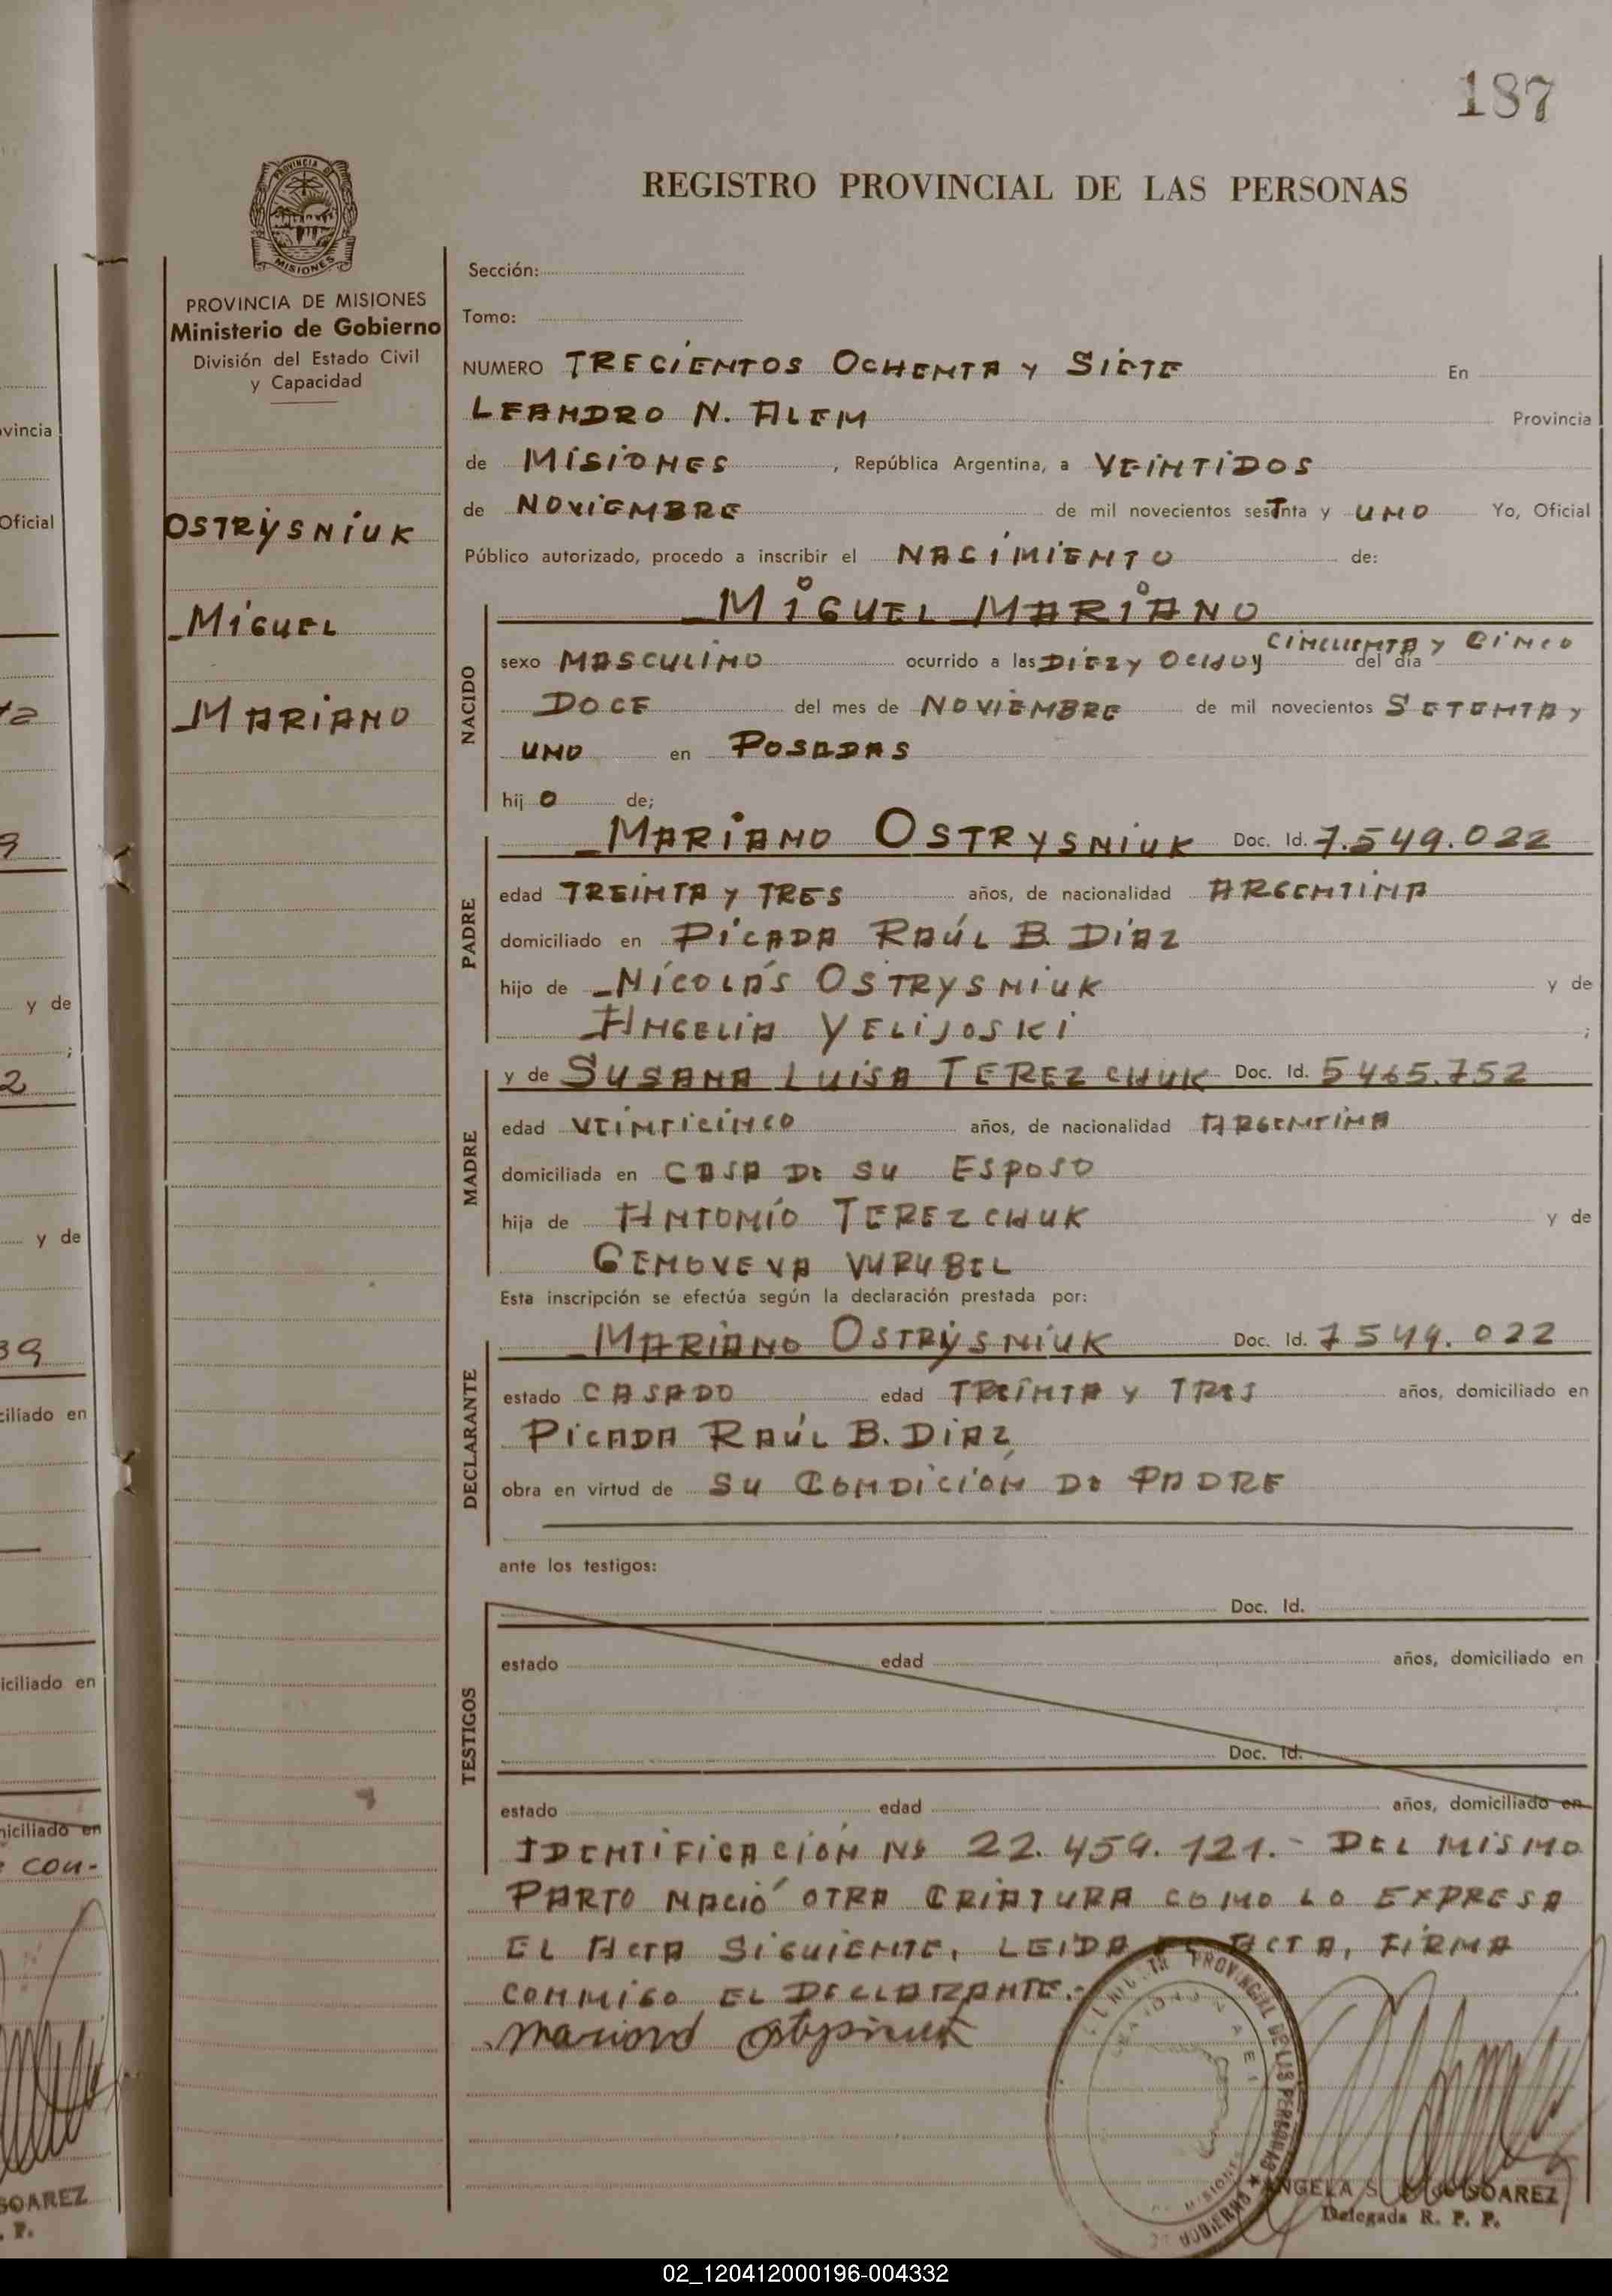 187
REGISTRO PROVINCIAL DE LAS PERSONAS
PROVINCIA DE MISIONES
Ministerio de Gobierno
División del Estado Civil
y Capacidad
OSTRYSNIUK
MIGUEL
MARIANO
Sección:
Tomo:
NUMERO TRECIENTOS OCHENTA Y SIETE En
LEANDRO N. ALEM Provincia
de MISIONES, República Argentina, a VEINTIDOS
de NOVIEMBRE de mil novecientos sesTnta y UNO Yo, Oficial
Público autorizado, procedo a inscribir el NACIMIENTO de:
NACIDO
MIGUEL MARIANO
CINCUENTA Y CINCO
sexo MASCULINO ocurrido a las DIEZ Y OCHO Y del día
DOCE del mes de NOVIEMBRE de mil novecientos SETENTA Y
UNO en POSADAS
hij O de;
PADRE
MARIANO OSTRYSNIUK Doc. Id. 7.549.022
edad TREINTA Y TRES años, de nacionalidad ARGENTINA
domiciliado en PICADA RAÚL B. DIAZ
hijo de NICOLÁS OSTRYSNIUK y de
ANGELIA YELIJOSKI ;
MADRE
y de SUSANA LUISA TEREZCHUK Doc. Id. 5465.752
edad VEINTICINCO años, de nacionalidad ARGENTINA
domiciliada en CASA DE SU ESPOSO
hija de ANTONÍO TEREZCHUK y de
GENOVEVA VURUBEL
Esta inscripción se efectúa según la declaración prestada por:
DECLARANTE
MARIANO OSTRYSNIUK Doc. Id. 7549.022
estado CASADO edad TREINTA Y TRES años, domiciliado en
PICADA RAÚL B. DIAZ
obra en virtud de SU CONDICIÓN DE PADRE
ante los testigos:
TESTIGOS
Doc. Id.
estado edad años, domiciliado en
Doc. Id.
estado edad años, domiciliado en
IDENTIFICACIÓN Nº 22.459.121.- DEL MISMO
PARTO NACIÓ OTRA CRIATURA COMO LO EXPRESA
EL ACTA SIGUIENTE, LEIDA EL ACTA, FIRMA
CONMIGO EL DECLARANTE.-
Mariano Ostrysniuk
PROVINCIAL DE LAS PERSONAS
GOBIERNO
MISIONES
ANGELA S. SOAREZ
Delegada R. P. P.
vincia
Oficial
y de
;
2
y de
39
ciliado en
iciliado en
niciliado en
con-
SOAREZ
. P.
02_120412000196-004332